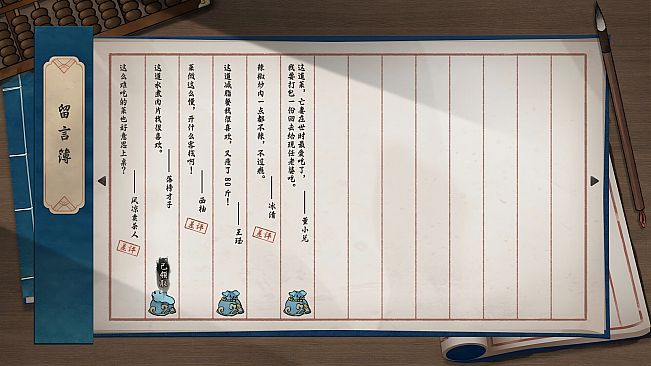 留言簿
这道菜，亡妻在世时最爱吃了，
我要打包一份回去给现任老婆吃。
——董小兄
辣椒炒肉一点都不辣，不过瘾。
——冰清
差评
这道减脂餐我很喜欢，又瘦了80斤！
——王珏
菜做这么慢，开什么客栈啊！
——西柚
差评
这道水煮肉片我很喜欢。
——落榜才子
已领取
这么难吃的菜也好意思上桌？
——风凉卖茶人
差评